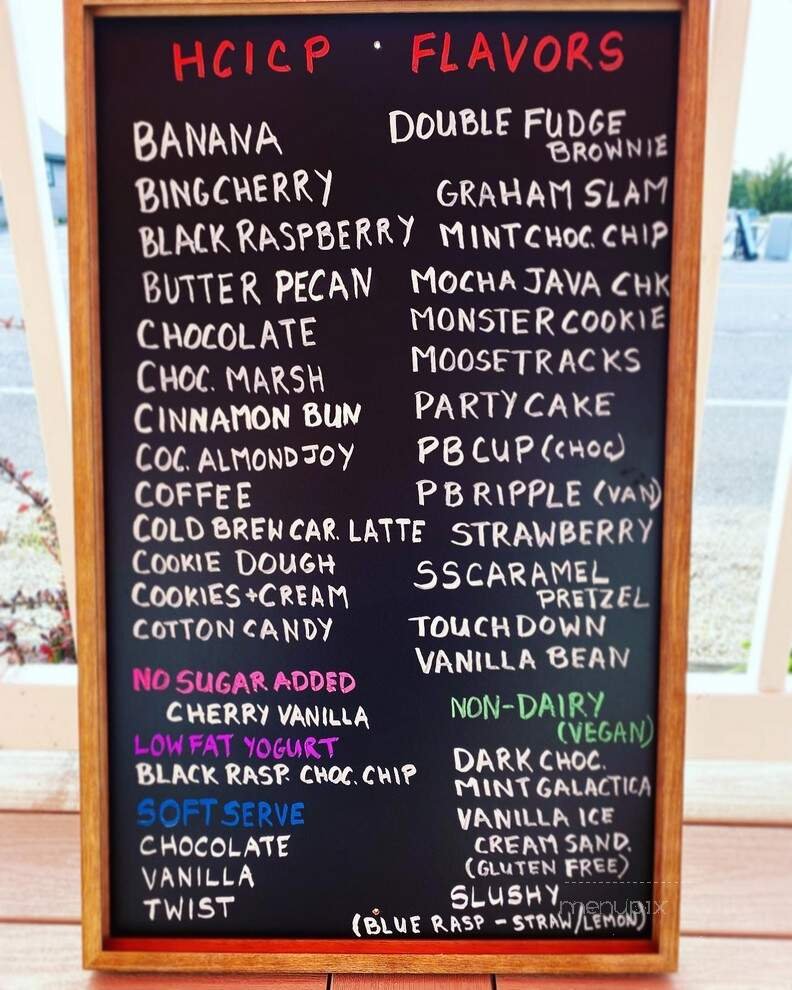 HCICP · FLAVORS
BANANA
BING CHERRY
BLACK RASPBERRY
BUTTER PECAN
CHOCOLATE
CHOC. MARSH
CINNAMON BUN
COC. ALMOND JOY
COFFEE
COLD BREW CAR. LATTE
COOKIE DOUGH
COOKIES+CREAM
COTTON CANDY
NO SUGAR ADDED
CHERRY VANILLA
LOWFAT YOGURT
BLACK RASP. CHOC. CHIP
SOFT SERVE
CHOCOLATE
VANILLA
TWIST
DOUBLE FUDGE
BROWNIE
GRAHAM SLAM
MINT CHOC. CHIP
MOCHA JAVA CHK
MONSTER COOKIE
MOOSETRACKS
PARTY CAKE
PB CUP (CHOC)
PB RIPPLE (VAN)
STRAWBERRY
SS CARAMEL
PRETZEL
TOUCHDOWN
VANILLA BEAN
NON-DAIRY
(VEGAN)
DARK CHOC.
MINT GALACTICA
VANILLA ICE
CREAM SAND.
(GLUTEN FREE)
SLUSHY
(BLUE RASP - STRAW/LEMON)
menupix